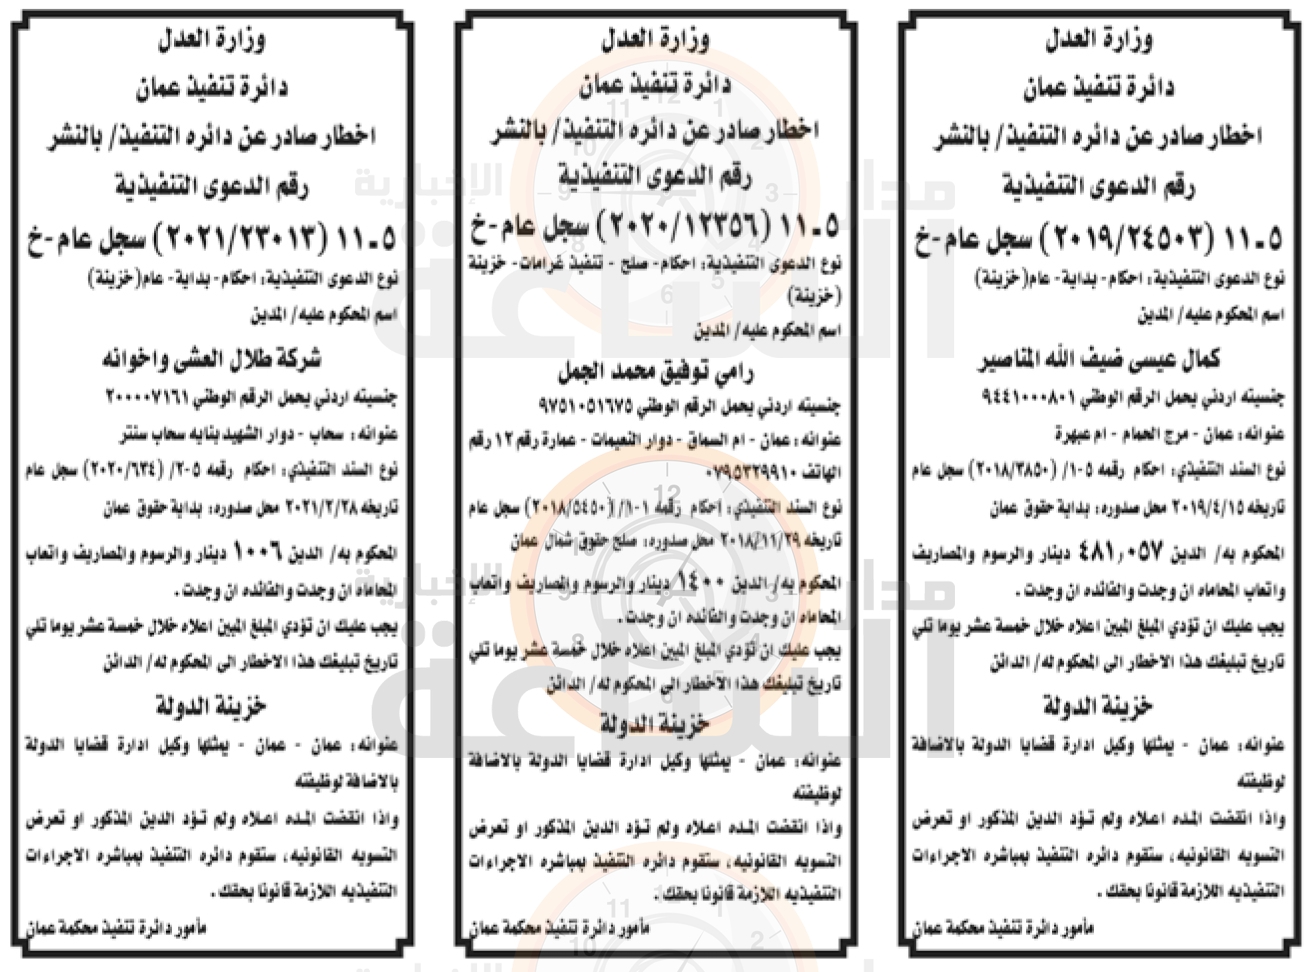 وزارة العدل
دائرة تنفيذ عمان
اخطار صادر عن دائره التنفيذ/ بالنشر
رقم الدعوى التنفيذية
٥ـ١١ (٢٠١٩/٢٤٥٠٣) سجل عام -خ
نوع الدعوى التنفيذية: احكام- بداية- عام(خزينة)
اسم المحكوم عليه/ المدين
كمال عيسى ضيف الله المناصير
جنسيته اردني يحمل الرقم الوطني ٩٤٤١٠٠٠٨٠١
عنوانه: عمان - مرج الحمام - ام عبهرة
نوع السند التنفيذي: احكام رقمه ٥-١/ (٢٠١٨/٣٨٥٠) سجل عام
تاريخه ٢٠١٩/٤/١٥ محل صدوره: بداية حقوق عمان
المحكوم به/ الدين ٤٨١,٠٥٧ دينار والرسوم والمصاريف
واتعاب المحاماه ان وجدت والفائده ان وجدت .
يجب عليك ان تؤدي المبلغ المبين اعلاه خلال خمسة عشر يوما تلي
تاريخ تبليغك هذا الاخطار الى المحكوم له/ الدائن
خزينة الدولة
عنوانه: عمان - يمثلها وكيل ادارة قضايا الدولة بالاضافة
لوظيفته
واذا انقضت المده اعلاه ولم تؤد الدين المذكور او تعرض
التسويه القانونيه، ستقوم دائره التنفيذ بمباشره الاجراءات
التنفيذيه اللازمة قانونا بحقك .
مأمور دائرة تنفيذ محكمة عمان
وزارة العدل
دائرة تنفيذ عمان
اخطار صادر عن دائره التنفيذ/ بالنشر
رقم الدعوى التنفيذية
٥ـ١١ (٢٠٢٠/١٢٣٥٦) سجل عام -خ
نوع الدعوى التنفيذية: احكام- صلح - تنفيذ غرامات- خزينة
(خزينة)
اسم المحكوم عليه/ المدين
رامي توفيق محمد الجمل
جنسيته اردني يحمل الرقم الوطني ٩٧٥١٠٥١٦٧٥
عنوانه: عمان - ام السماق - دوار النعيمات - عمارة رقم ١٢ رقم
الهاتف ٠٧٩٥٣٢٩٩١٠
نوع السند التنفيذي: احكام رقمه ١-١/ (٢٠١٨/٥٤٥٠) سجل عام
تاريخه ٢٠١٨/١١/٢٩ محل صدوره: صلح حقوق شمال عمان
المحكوم به/ الدين ١٤٠٠ دينار والرسوم والمصاريف واتعاب
المحاماه ان وجدت والفائده ان وجدت .
يجب عليك ان تؤدي المبلغ المبين اعلاه خلال خمسة عشر يوما تلي
تاريخ تبليغك هذا الاخطار الى المحكوم له/ الدائن
خزينة الدولة
عنوانه: عمان - يمثلها وكيل ادارة قضايا الدولة بالاضافة
لوظيفته
واذا انقضت المده اعلاه ولم تؤد الدين المذكور او تعرض
التسويه القانونيه، ستقوم دائره التنفيذ بمباشره الاجراءات
التنفيذيه اللازمة قانونا بحقك .
مأمور دائرة تنفيذ محكمة عمان
وزارة العدل
دائرة تنفيذ عمان
اخطار صادر عن دائره التنفيذ/ بالنشر
رقم الدعوى التنفيذية
٥ـ١١ (٢٠٢١/٢٣٠١٣) سجل عام -خ
نوع الدعوى التنفيذية: احكام- بداية- عام(خزينة)
اسم المحكوم عليه/ المدين
شركة طلال العشي واخوانه
جنسيته اردني يحمل الرقم الوطني ٢٠٠٠٠٧١٦١
عنوانه: سحاب - دوار الشهيد بنايه سحاب سنتر
نوع السند التنفيذي: احكام رقمه ٥-٢/ (٢٠٢٠/٦٣٤) سجل عام
تاريخه ٢٠٢١/٢/٢٨ محل صدوره: بداية حقوق عمان
المحكوم به/ الدين ١٠٠٦ دينار والرسوم والمصاريف واتعاب
المحاماه ان وجدت والفائده ان وجدت .
يجب عليك ان تؤدي المبلغ المبين اعلاه خلال خمسة عشر يوما تلي
تاريخ تبليغك هذا الاخطار الى المحكوم له/ الدائن
خزينة الدولة
عنوانه: عمان - عمان - يمثلها وكيل ادارة قضايا الدولة
بالاضافة لوظيفته
واذا انقضت المده اعلاه ولم تؤد الدين المذكور او تعرض
التسويه القانونيه، ستقوم دائره التنفيذ بمباشره الاجراءات
التنفيذيه اللازمة قانونا بحقك .
مأمور دائرة تنفيذ محكمة عمان
مدار الساعة الإخبارية
مدار الساعة الإخبارية